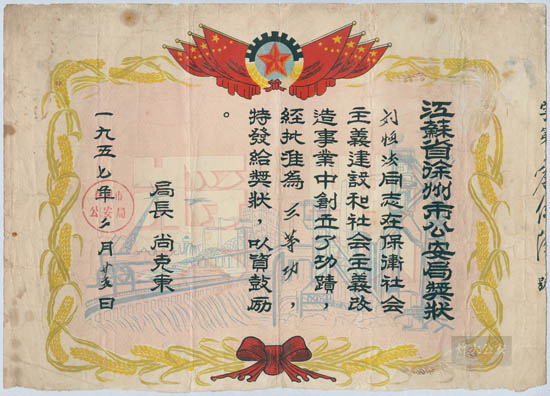 字第 號
江蘇省徐州市公安局奬狀
同志在保衛社会
主義建設和社会主義改
造事業中創立了功蹟，
經批准為三等功，
特發給奬狀，以資鼓励
。
局長 尚克東
一九五七年二月廿五日
市
公安局